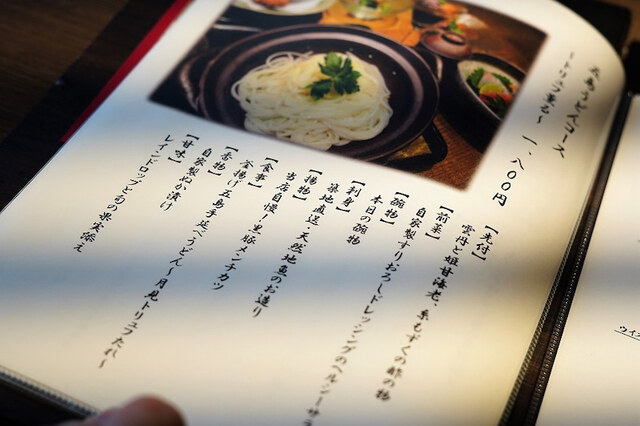 五島うどんコース
〜トリュフ薫る〜 一、八〇〇円
【先付】
雲丹と姫甘海老、糸もずくの酢の物
【前菜】
自家製すりおろしドレッシングのヘルシーサラ
【碗物】
本日の碗物
【刺身】
築地直送・天然地魚のお造り
【揚物】
当店自慢!黒豚メンチカツ
【食事】
釜揚げ五島手延べうどん〜月見トリュフたれ〜
【香物】
自家製ぬか漬け
【甘味】
レインドロップと旬の果実添え
ウイス